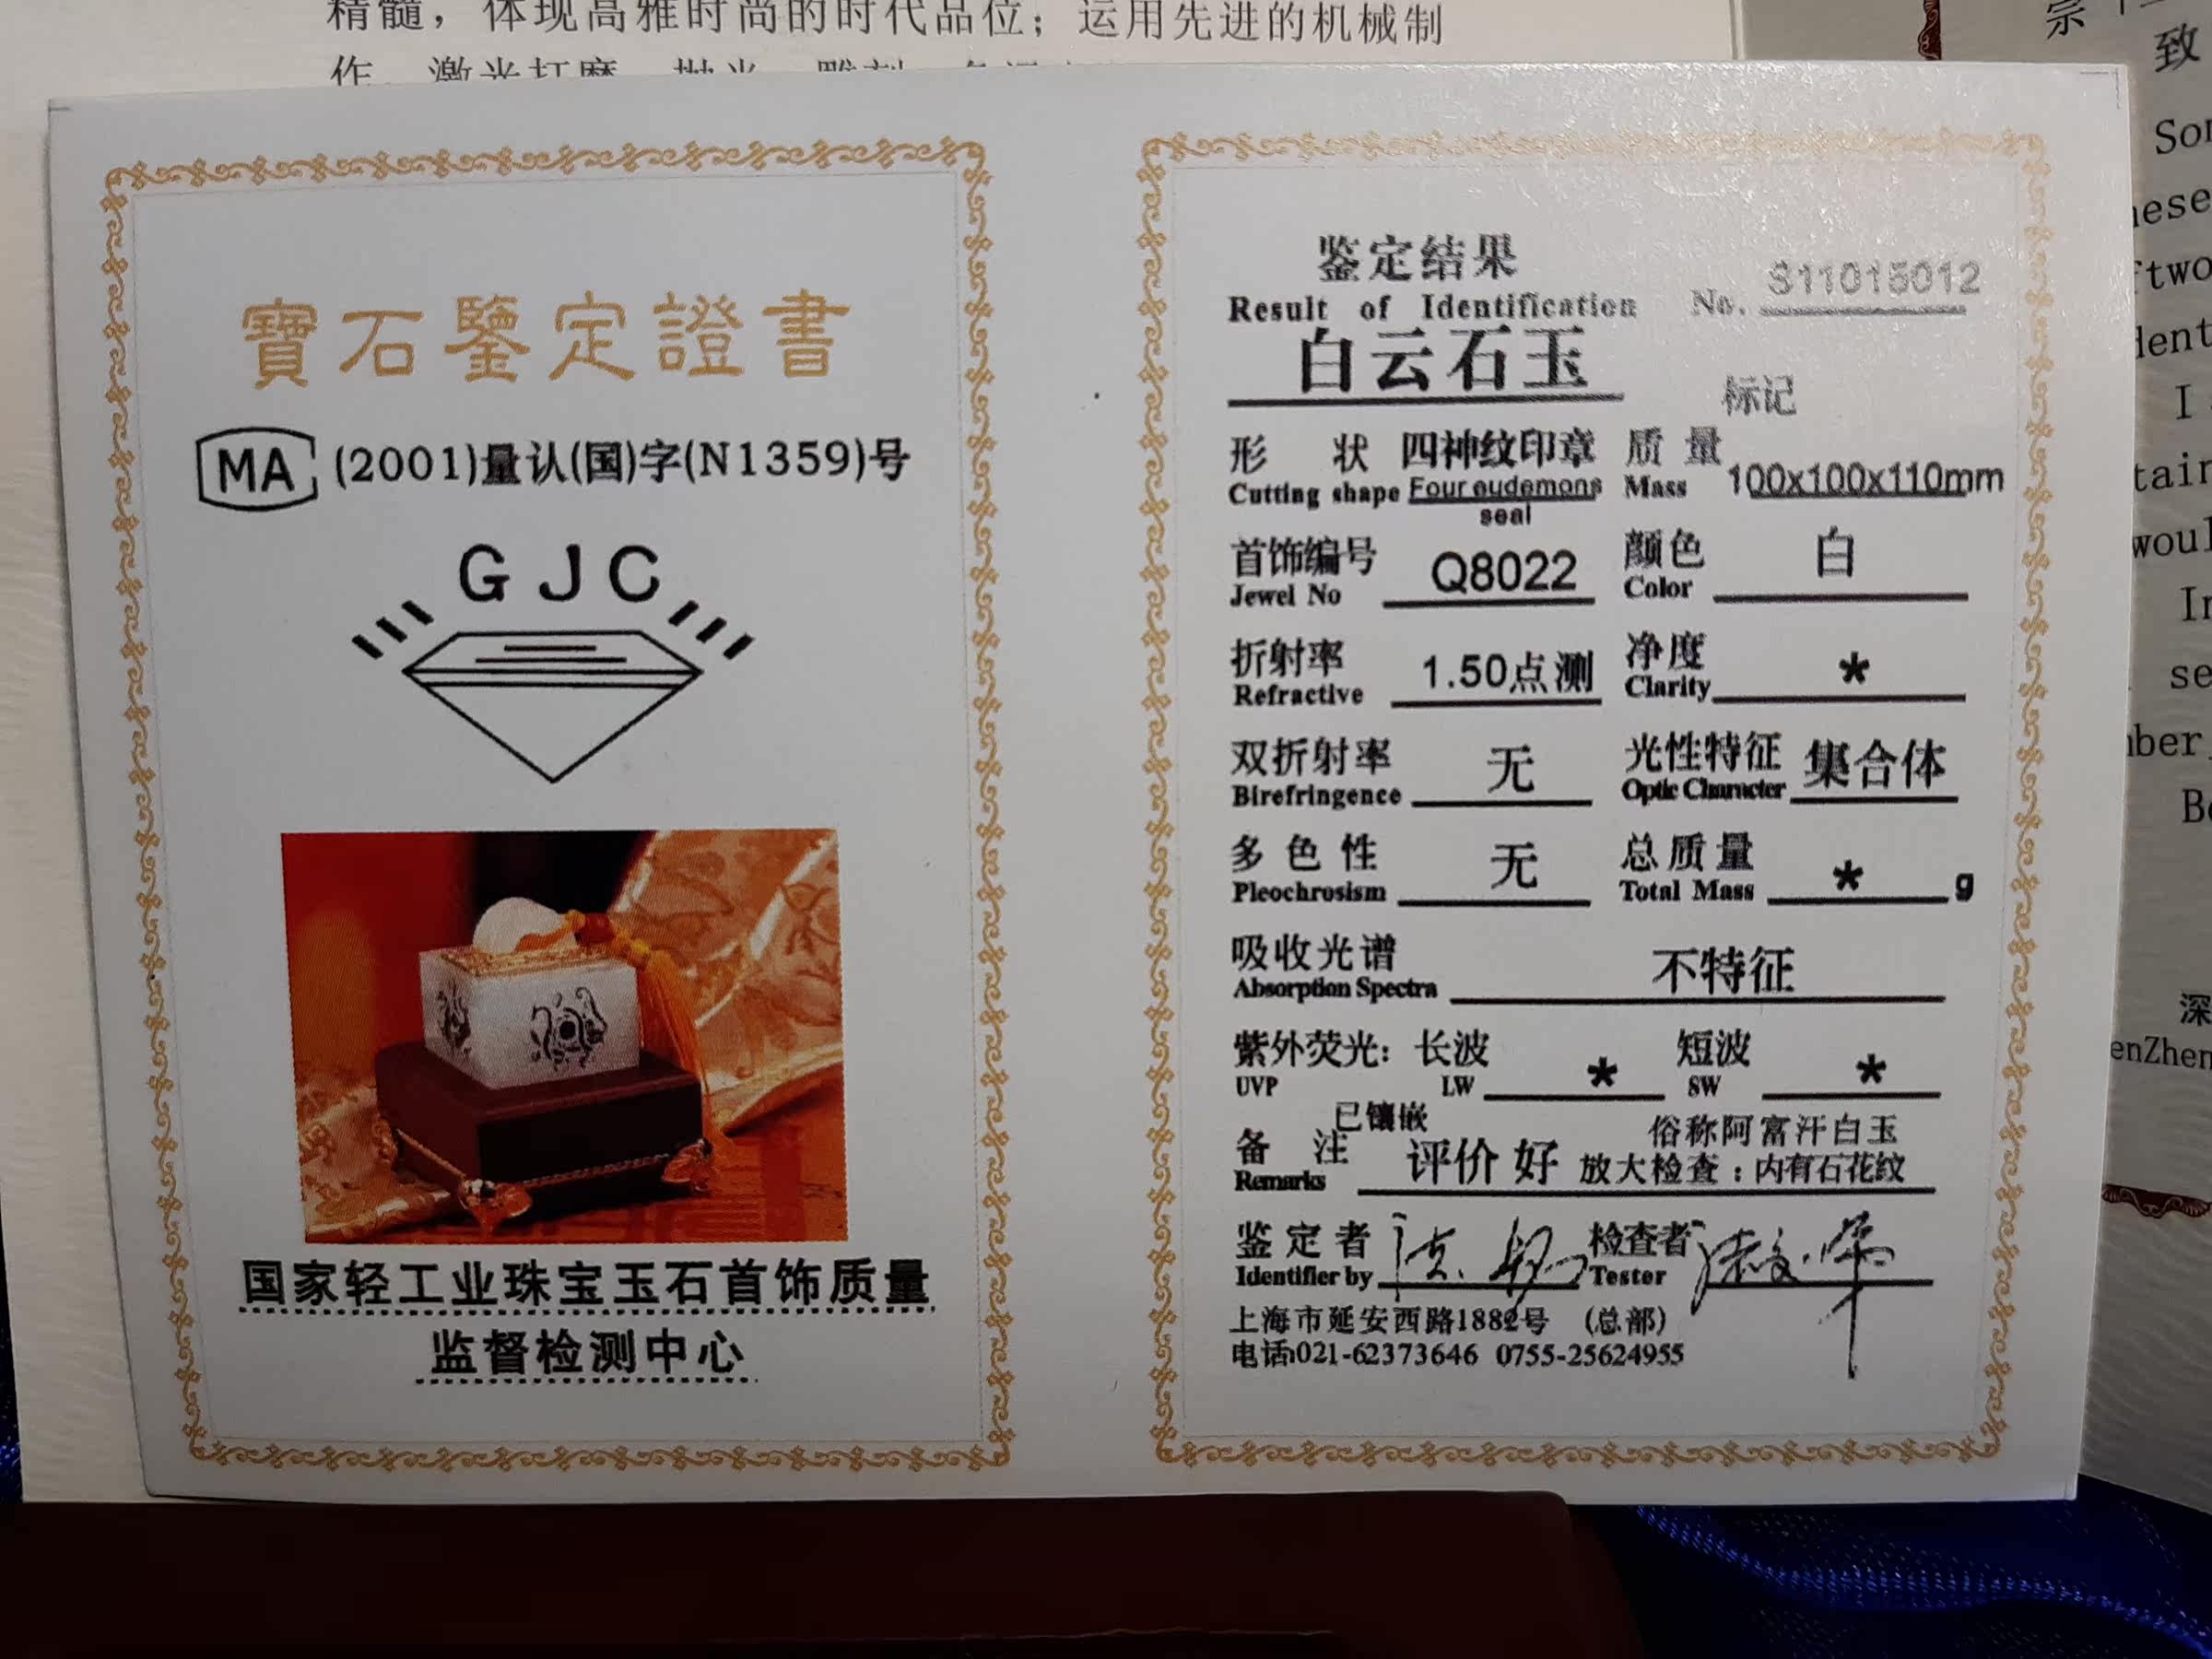 精髓，体现高雅时尚的时代品位；运用先进的机械制
寶石鑒定證書
MA (2001)量认(国)字(N1359)号
GJC
国家轻工业珠宝玉石首饰质量
监督检测中心
鉴定结果
Result of Identification No. S11015012
白云石玉
标记
形 状 四神纹印章 质 量
Cutting shape Four eudemons seal Mass 100x100x110mm
首饰编号 Q8022 颜色 白
Jewel No Color
折射率 1.50点测 净度 *
Refractive Clarity
双折射率 无 光性特征 集合体
Birefringence Optic Character
多色性 无 总质量 * g
Pleochrosism Total Mass
吸收光谱 不特征
Absorption Spectra
紫外荧光: 长波 * 短波 *
UVP LW SW
已镶嵌 俗称阿富汗白玉
备 注 评价 好 放大检查：内有石花纹
Remarks
鉴定者 检查者
Identifier by Tester
上海市延安西路1882号 (总部)
电话:021-62373646 0755-25624955
宗
致
I
深